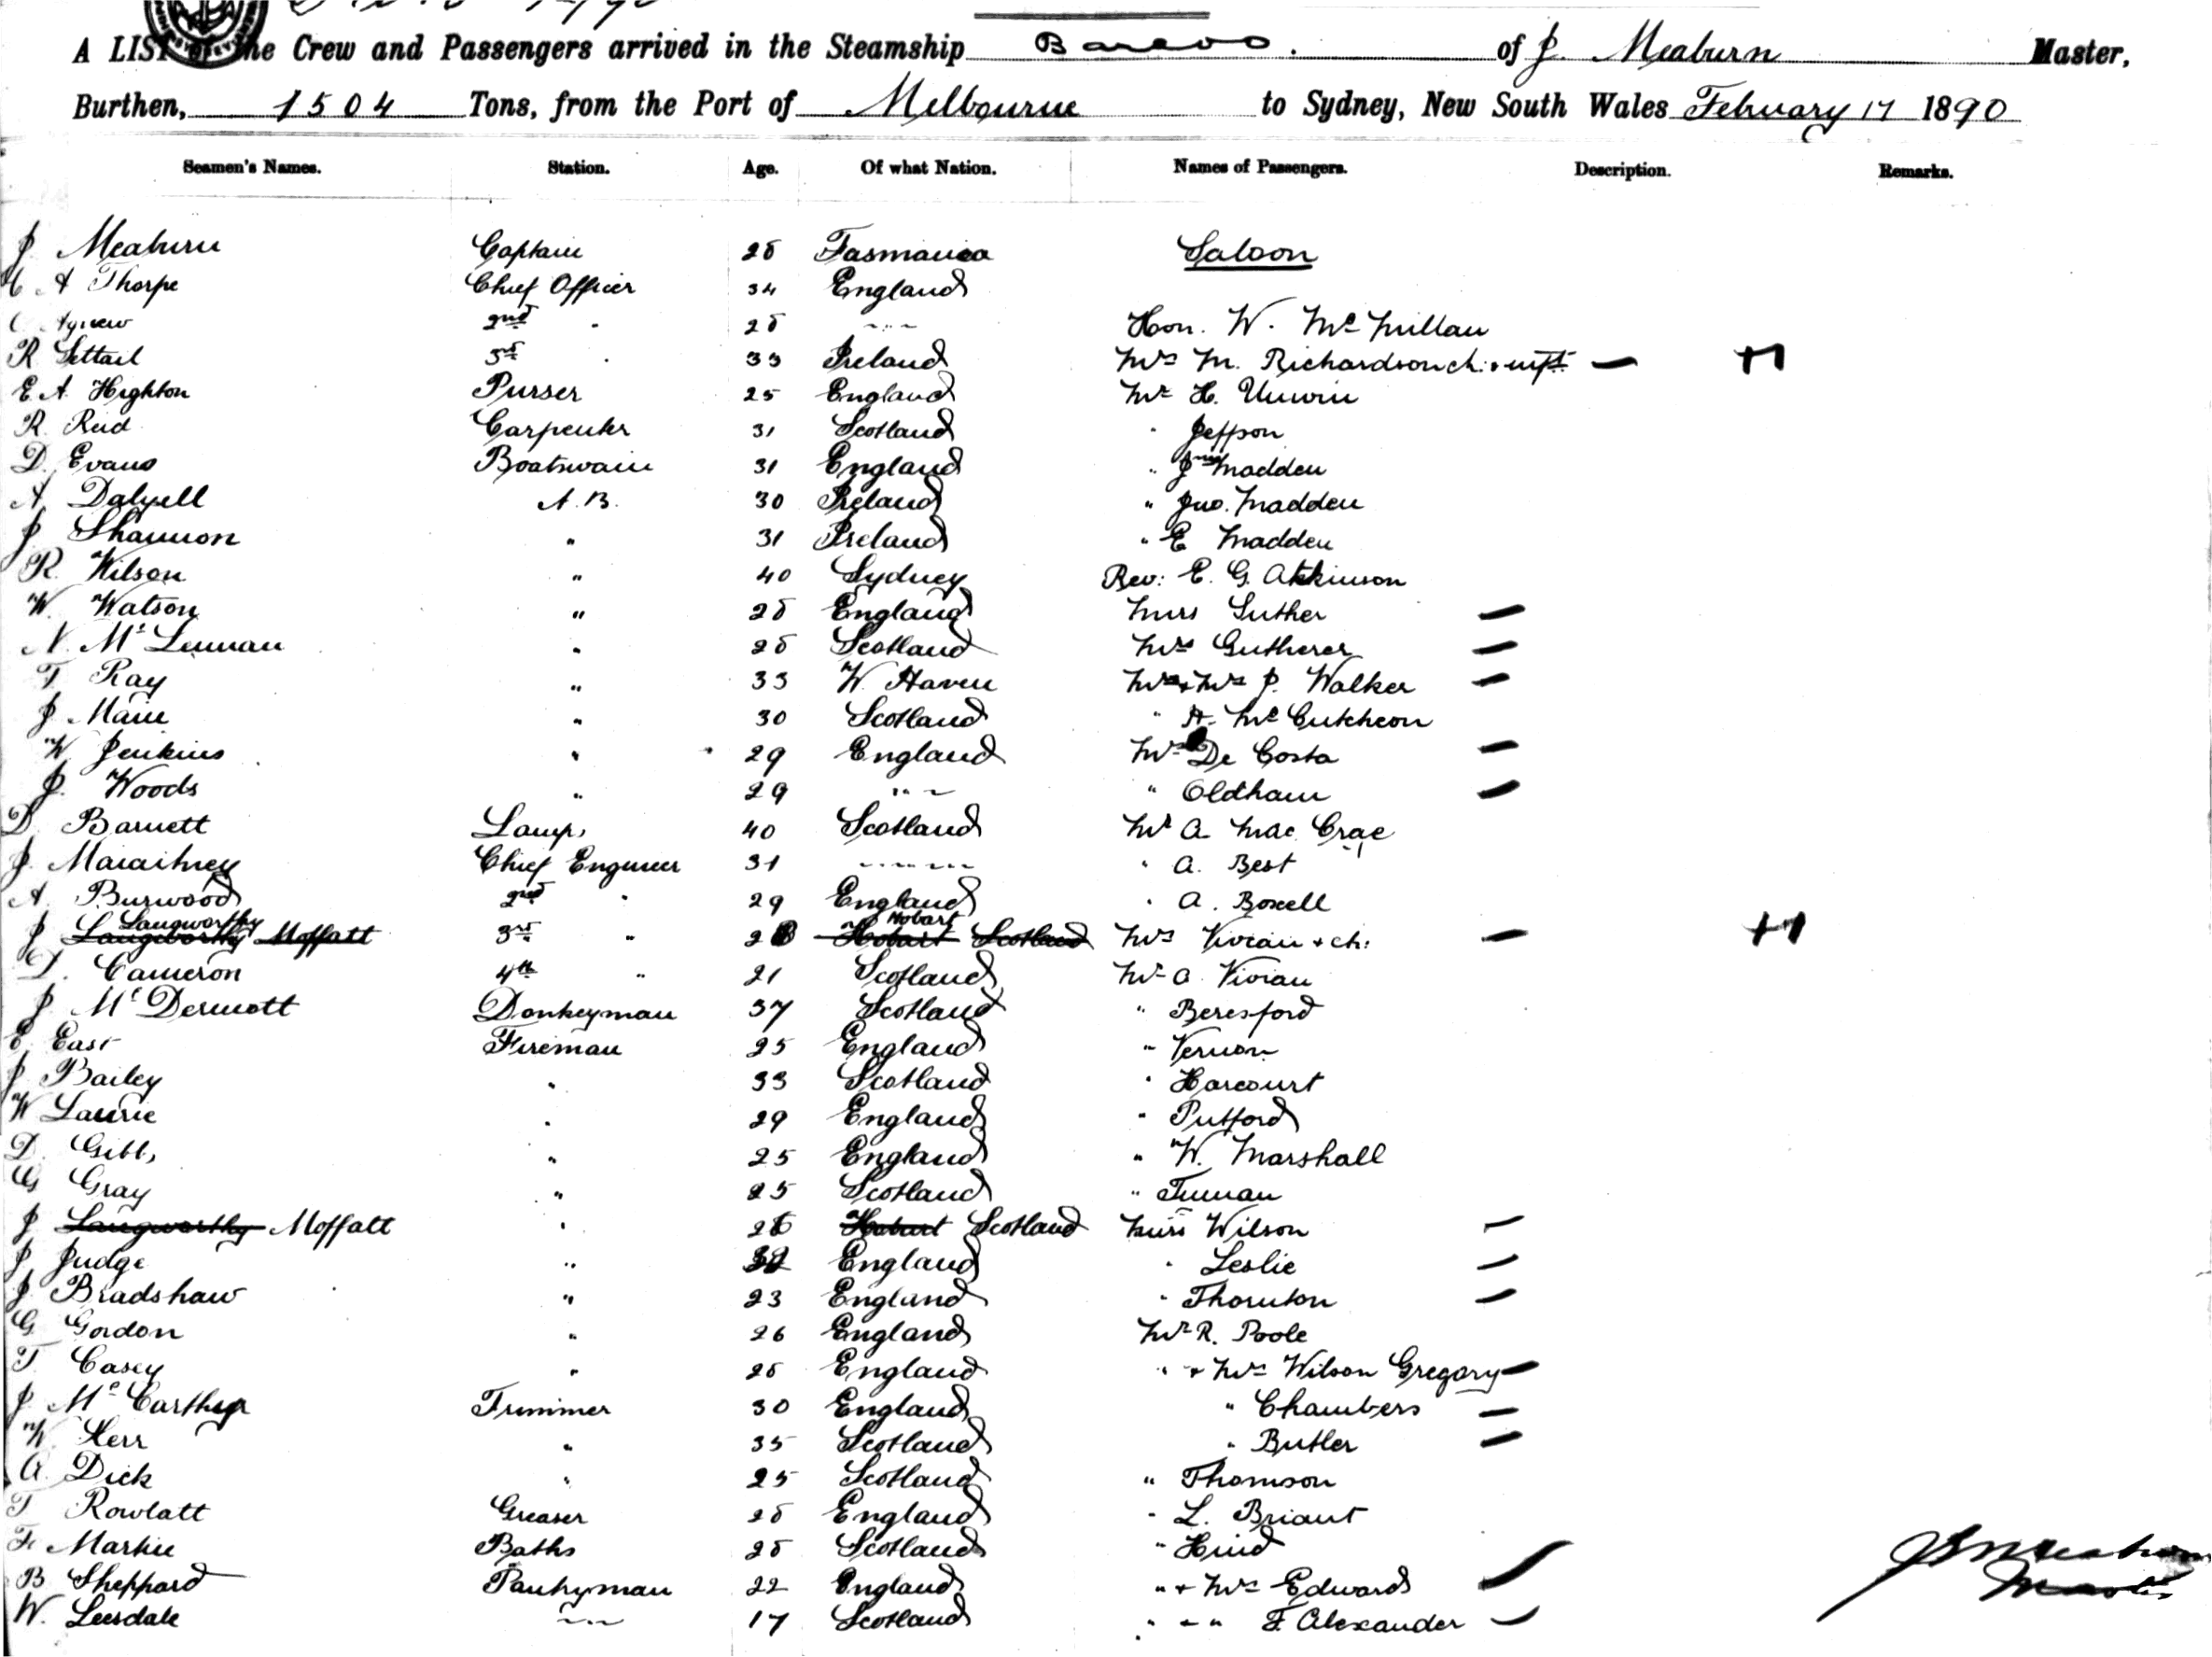 A LIST of the Crew and Passengers arrived in the Steamship Barcoo. of J. Meaburn Master,
Burthen, 1504 Tons, from the Port of Melbourne to Sydney, New South Wales February 17 1890
Seamen's Names. Station. Age. Of what Nation. Names of Passengers. Description. Remarks.
J Meaburn Captain 28 Tasmania Saloon
A Thorpe Chief Officer 34 England
C Agnew 2nd " 28 " Hon. W. Mc Millan
R Settail 3rd " 33 Ireland Mrs M. Richardson ch: & inft — +1
E. A. Highton Purser 25 England Mr H. Unwin
R. Reid Carpenter 31 Scotland " Jeffson
D. Evans Boatswain 31 England " Madden
A Dalyell A.B. 30 Ireland " Jno. Madden
J Shannon " 31 Ireland " E Madden
R. Wilson " 40 Sydney Rev: E. G. Atkinson
W Watson " 28 England Miss Luther —
N. Mc Lennan " 28 Scotland Mrs Gutherer —
T Ray " 33 W. Haven Mr & Mrs J. Walker —
J Main " 30 Scotland " A. Mc Cutcheon
W Jenkins " 29 England Mrs De Costa —
J. Woods " 29 " Oldham —
D Barnett Lamps 40 Scotland Mr A Mac Crae
J. Chief Engineer 31 " A. Best
A. Burwood 2nd " 29 England " A. Boxell
J Langworthy Langworthy Moffatt 3rd " 28 Hobart Hobart Scotland Mrs Vivian & ch: — +1
D. Cameron 4th " 21 Scotland Mr A Vivian
J Mc Dermott Donkeyman 37 Scotland " Beresford
E East Fireman 25 England " Vernon
J Bailey " 33 Scotland " Harcourt
W Laurie " 29 England " Putford
D. Gibb, " 25 England " W. Marshall
G Gray " 25 Scotland "
J Langworthy Moffatt " 28 Hobart Scotland Miss Wilson —
J Judge " England " Leslie —
J Bradshaw " 23 England " Thornton —
G Gordon " 26 England Mr R. Poole
T Casey " 28 England " & Mrs Wilson Gregory —
J Mc Carthy Trimmer 30 England " Chambers —
W Kerr " 35 Scotland " Butler —
A. Dick " 25 Scotland " Thomson
T Rowlatt Greaser 28 England " L. Briant
F. Martin Baths 28 Scotland " Hind
B Sheppard Pantryman 22 England " & Mrs Edwards
W. Leesdale " 17 Scotland " & " F. Alexander —
Master